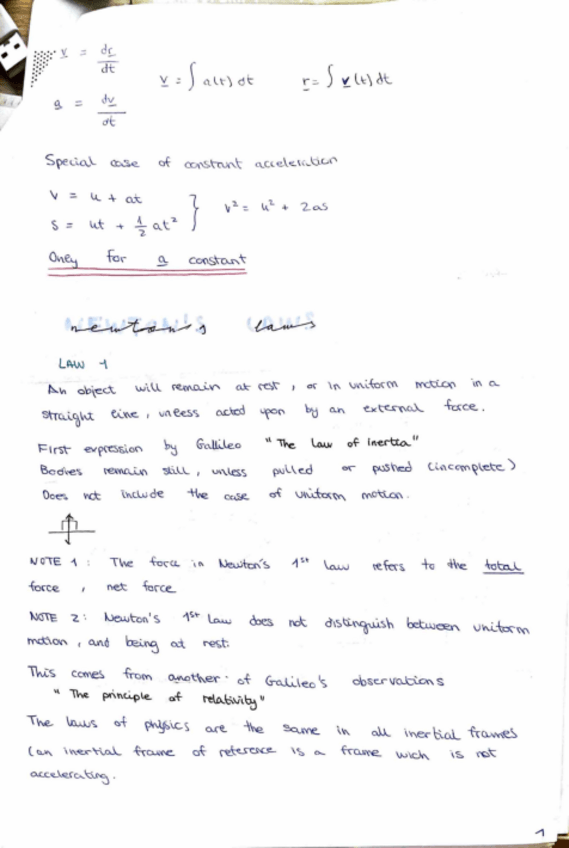 v = dr/dt
v = ∫ a(t) dt r = ∫ v(t) dt
a = dv/dt
Special case of constant acceleration
v = u + at
s = ut + 1/2 at² } v² = u² + 2as
Only for a constant
NEWTON'S LAWS
newton's laws
LAW 1
An object will remain at rest, or in uniform motion in a
straight line, unless acted upon by an external force.
First expression by Gallileo "The Law of Inertia"
Bodies remain still, unless pulled or pushed (incomplete)
Does not include the case of uniform motion.
NOTE 1: The force in Newton's 1st Law refers to the total
force, net force
NOTE 2: Newton's 1st Law does not distinguish between uniform
motion, and being at rest.
This comes from another of Galileo's observations
"The principle of relativity"
The laws of physics are the same in all inertial frames
(an inertial frame of reference is a frame wich is not
accelerating.
1